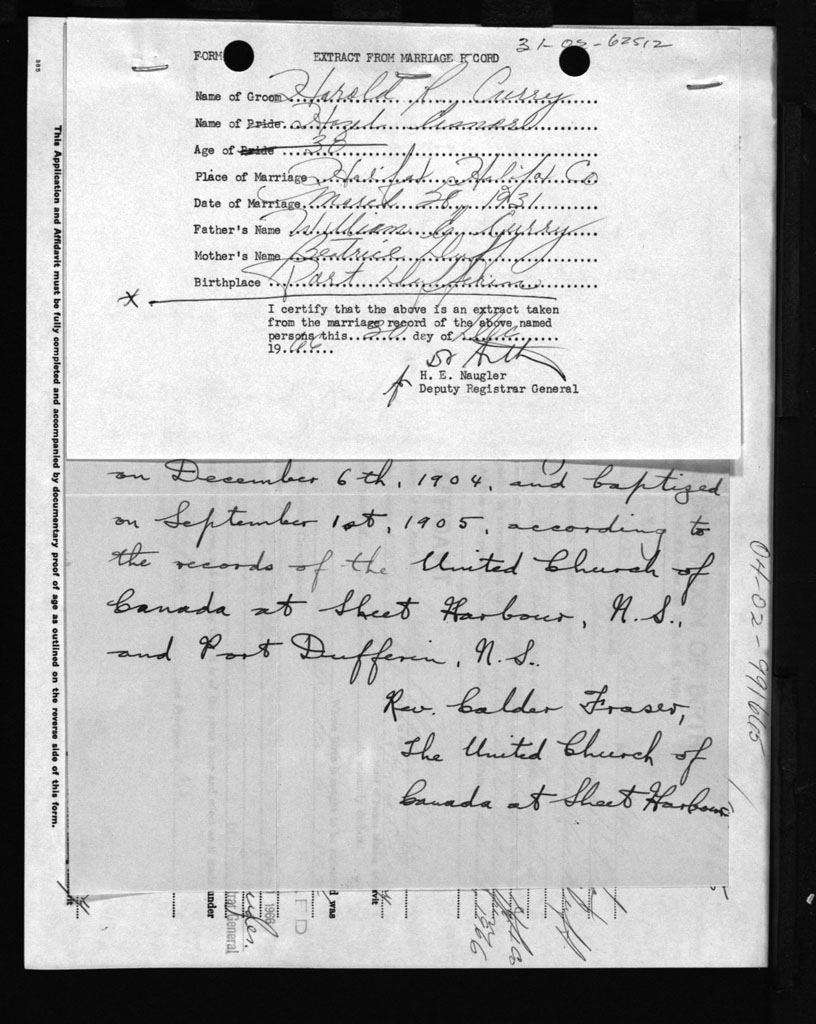 31-05-62512
FORM EXTRACT FROM MARRIAGE R CORD
Name of Groom Harold R. Curry
Name of Bride. Hazel
Age of Bride 38
Place of Marriage Halifax, Halifax Co
Date of Marriage March 28, 1931
Father's Name William B. Curry
Mother's Name Beatrice Duff
Birthplace Port Dufferin
X
I certify that the above is an extract taken
from the marriage record of the above named
persons this 20 day of Dec
19 66
for H. E. Naugler
Deputy Registrar General
on December 6th, 1904, and baptized
on September 1st, 1905, according to
the records of the United Church of
Canada at Sheet Harbour, N.S.,
and Port Dufferin, N.S.
Rev. Calder Fraser,
The United Church of
Canada at Sheet Harbour
385
This Application and Affidavit must be fully completed and accompanied by documentary proof of age as outlined on the reverse side of this form.
04-02-991605
under
trar General
1966
was